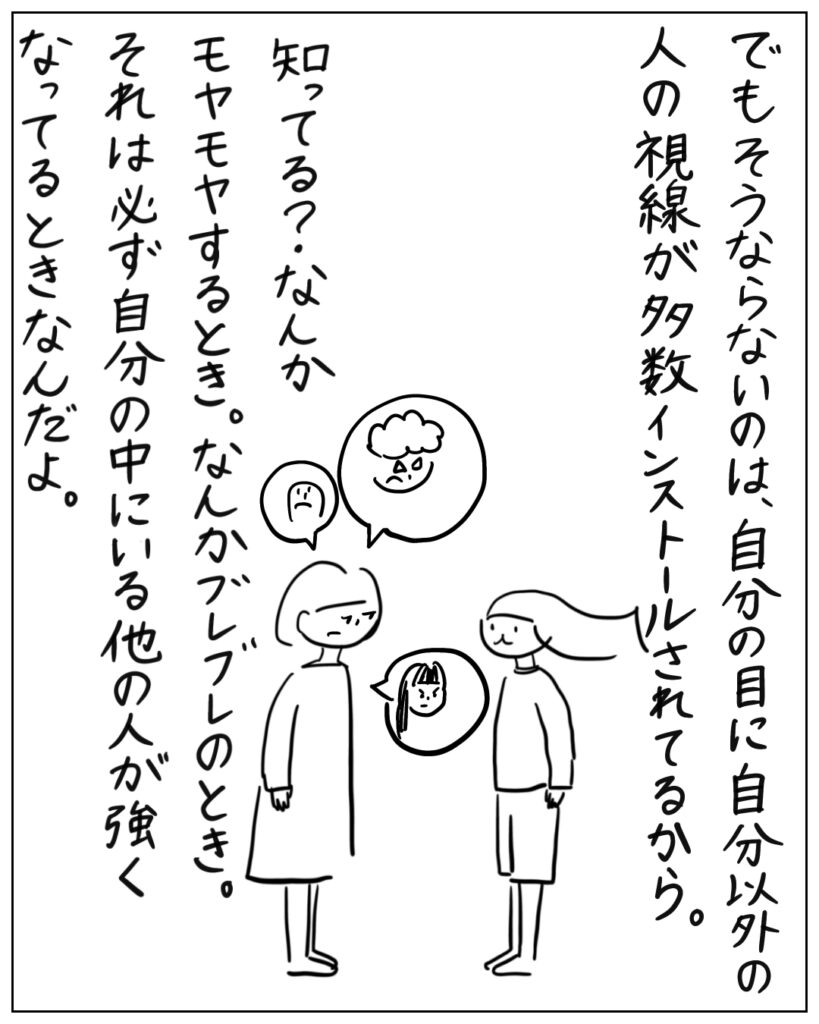 でもそうならないのは、自分の目に自分以外の
人の視線が多数インストールされてるから。
知ってる?.なんか
モヤモヤするとき。なんかブレブレのとき。
それは必ず自分の中にいる他の人が強く
なってるときなんだよ。